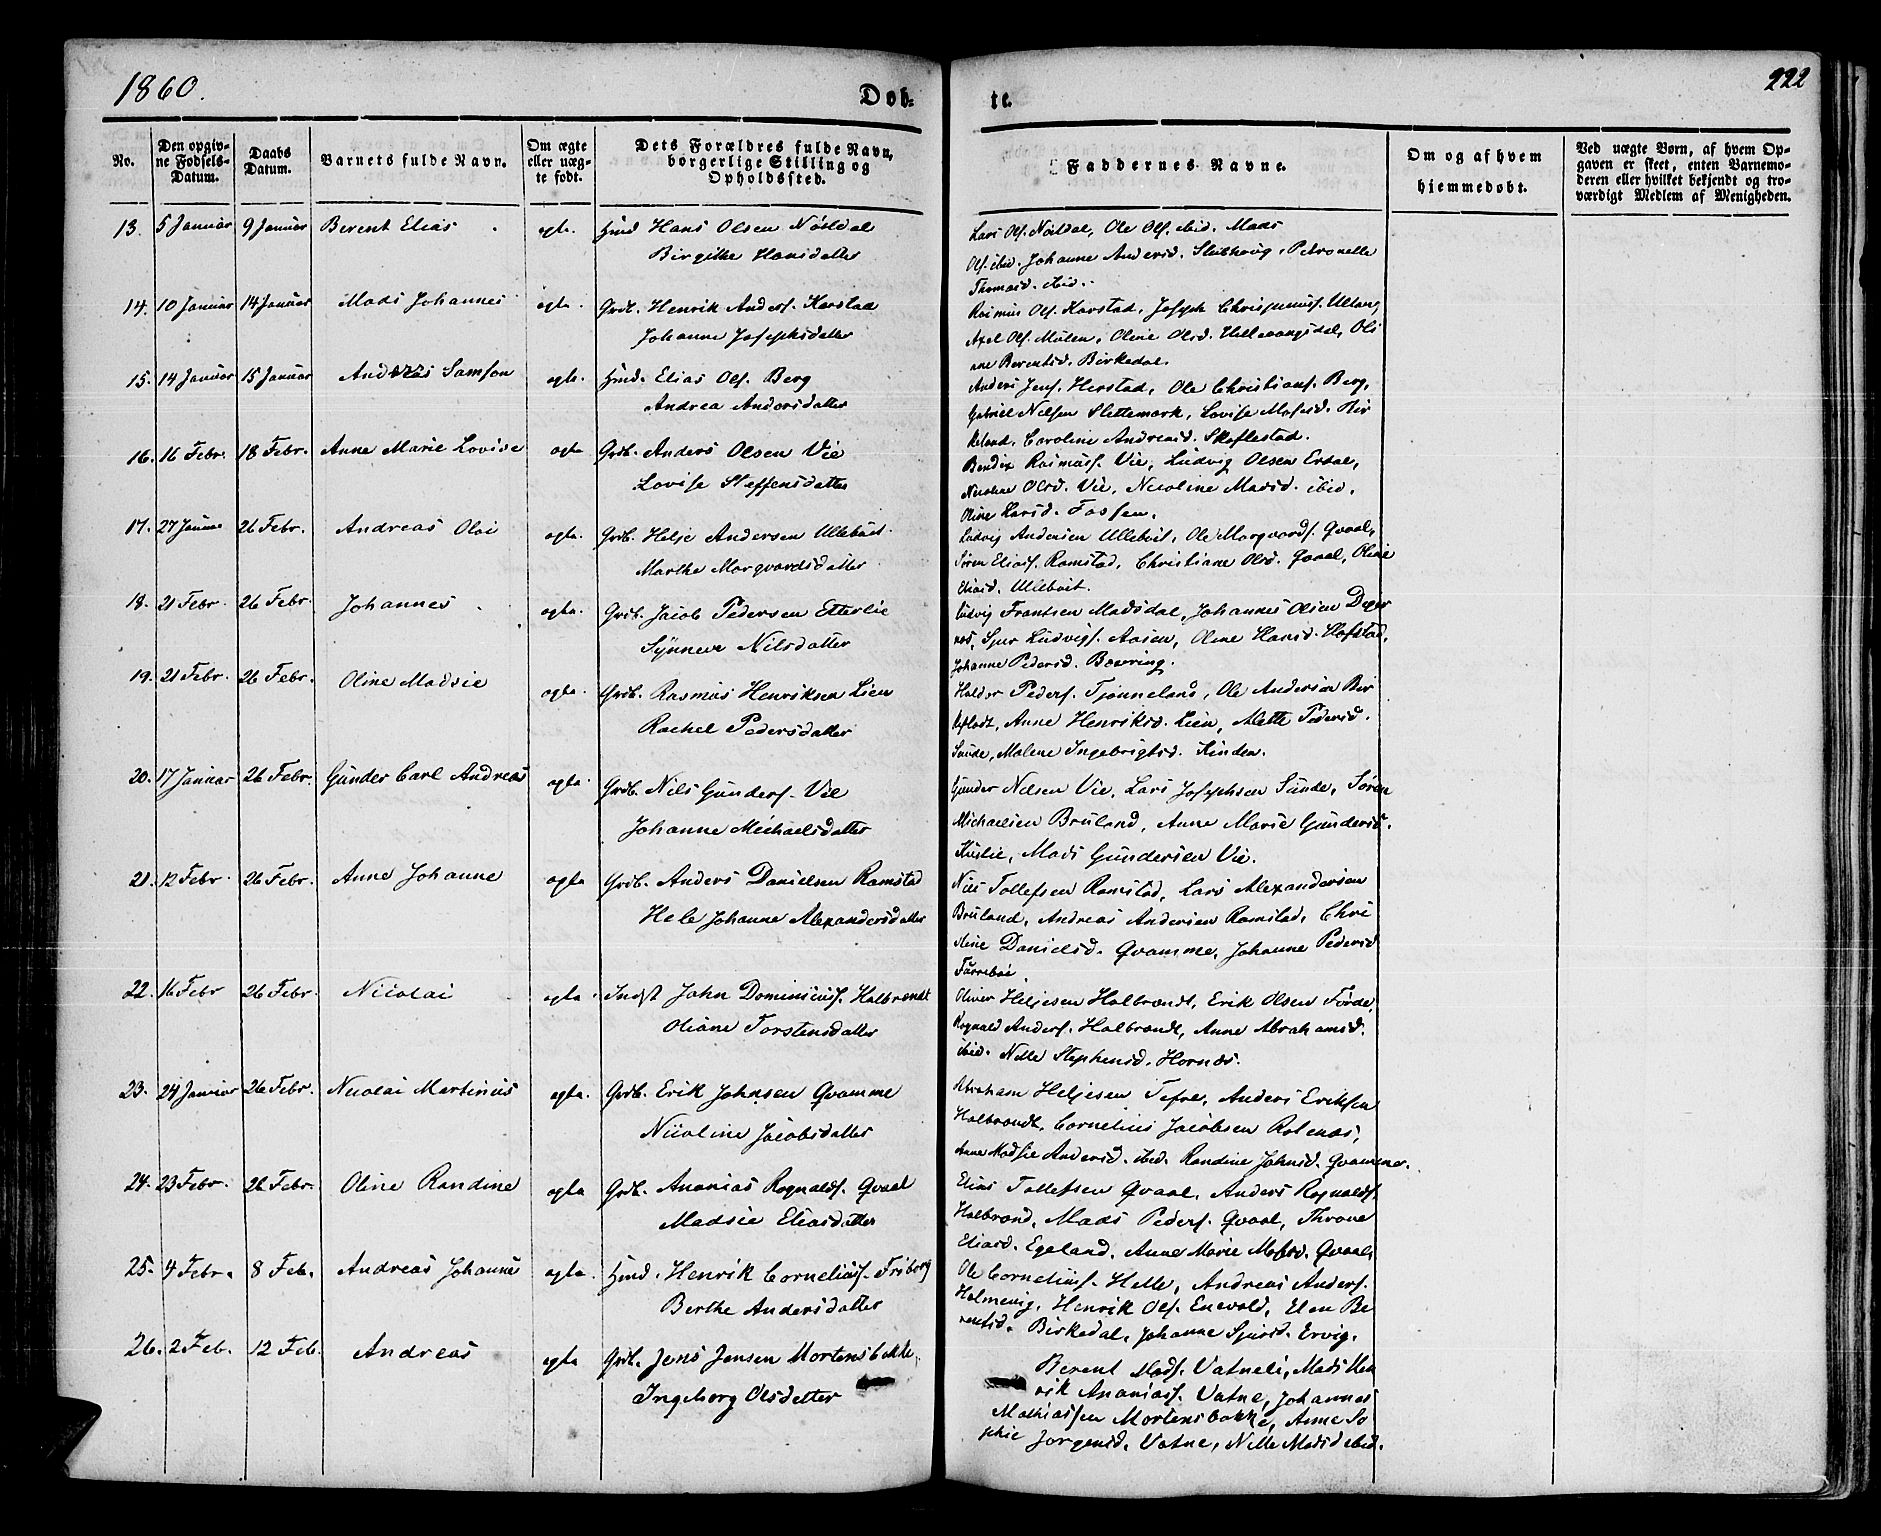 1860.
Døb-
te.
222
No.
Den opgiv-
ne Fødsels-
Datum.
Daabs
Datum.
Barnets fulde Navn.
Om ægte
eller uæg-
te født.
Dets Forældres fulde Navn,
borgerlige Stilling og
Opholdssted.
Faddernes Navne.
Om og af hvem
hjemmedøbt.
Ved uægte Børn, af hvem Op-
gaven er skeet, enten Barnemo-
deren eller hvilket bekjendt og tro-
værdigt Medlem af Menigheden.
13. 5 Januar 9 Januar Berent Elias ægta. Hmd Hans Olsen Nöstdal
Birgithe Hansdatter
Lars Ols. Nöstdal, Ole Ols. ibid. Mads
Ols. ibid. Johanne Andersd. Petronelle
Thomasd. ibid.
14. 10 Januar 14 Januar Mads Johannes ægta. Grdb. Henrik Anders. Karstad
Johanne Josephsdatter
Rasmus Ols. Karstad, Joseph Ultang
Axel Ols. Mülen, Oline Olsd. Hellevangsdal, Oli
ane Berentsd. Birkedal.
15. 14 Januar 15 Januar Andreas Samson ægta. Hmd. Elias Ols. Berg
Andrea Andersdatter
Anders Jens. Herstad, Ole Christians. Berg,
Gabriel Nelsen Slettemark, Lovise Mosesd. Bir
keland, Caroline Andreasd. Skaflestad.
16. 16 Febr. 18 Febr. Anne Marie Lovise ægta Grdb. Anders Olsen Vie
Lovise Steffensdatter
Bendix Rasmuss. Vie, Ludvig Olsen Erdal,
Olsd. Vie, Nicoline Madsd. ibid,
Oline Larsd. Fossen.
17. 27 Januar 26 Febr. Andreas Olai ægta. Grdb. Helje Andersen Ullebust
Marthe Marqvardsdatter
Ludvig Andersen Ullebust, Ole Marqvards. Qvaal,
Søren Elias. Ramstad, Christiane Olsd. Qvaal, Oline
Eliasd. Ullebust.
18. 21 Febr. 26 Febr. Johannes ægta. Grdb. Jacob Pedersen Etterlie
Synneve Nilsdatter
Ludvig Frantsen Madsdal, Johannes Olsen Deger
næs, Sjur Ludvigs. Aasen, Oline Hansd. Hafstad,
Johanne Pedersd. Bowring.
19. 21 Febr. 26 Febr. Oline Madsie ægta. Grdb. Rasmus Henriksen Lien
Rachel Pedersdatter
Haldor Peders. Tjønneland, Ole Andersen Bir
keflodt, Anne Henriksd. Lien, Mette Pedersd.
Sunde, Malene Ingebrigtsd. Kinden.
20. 17 Januar 26 Febr. Gunder Carl Andreas ægta Grdb. Nils Gunders. Vie
Johanne Michaelsdatter
Gunder Nilsen Vie, Lars Josephsen Sunde, Søren
Michaelsen Bruland, Anne Marie Gundersd.
Mads Gundersen Vie.
21. 12 Febr. 26 Febr. Anne Johanne ægta Grdb. Anders Danielsen Ramstad
Hele Johanne Alexandersdatter
Nils Tollefsen Ramstad, Lars Alexandersen
Bruland, Andreas Andersen Ramstad, Chri
stine Danielsd. Qvamme, Johanne Pedersd
Farsebøe.
22. 16 Febr 26 Febr. Nicolai ægta. Indst John Dominicus. Halbrendt
Oliane Torstensdatter
Oliver Heljesen Halbrendt, Erik Olsen Førde,
Ragnald Anders. Halbrendt, Anne Abrahamsd.
ibid. Nille Stephensd. Hornæs.
23. 24 Januar 26 Febr. Nicolai Martinus ægta. Grdb. Erik Johnsen Qvamme
Nicoline Jacobsdatter
Abraham Heljesen Tefre, Anders Eriksen
Halbrendt, Cornelius Jacobsen Rotenæs,
Anne Madsie Andersd. ibid. Randine Johnsd. Qvamme.
24. 23 Febr. 26 Febr. Oline Randine ægta Grdb. Ananias Ragnalds. Qvaal
Madsie Eliasdatter
Elias Tollefsen Qvaal, Anders Ragnalds.
Halbrend, Mads Peders. Qvaal, Throne
Eliasd. Egeland, Anne Marie Mosesd. Qvaal,
25. 4 Febr. 8 Feb. Andreas Johannes ægta. Hmd. Henrik Cornelius. Friborg
Berthe Andersdatter
Ole Cornelius. Helle, Andreas Anders.
Holmevig, Henrik Ols. Enevold, Elen Be
rentsd. Birkedal, Johanne Sjursd. Ervig.
26. 2 Feb. 12 Feb. Andreas ægta Grdb. Jens Jensen Mortensbakke
Ingeborg Olsdatter
Berent Mads. Vatneli, Mads Hen
rik Ananias. Vatne, Johannes
Mathiassen Mortensbakke, Anne So
phie Jørgensd. Vatne, Nille Madsd ibid.